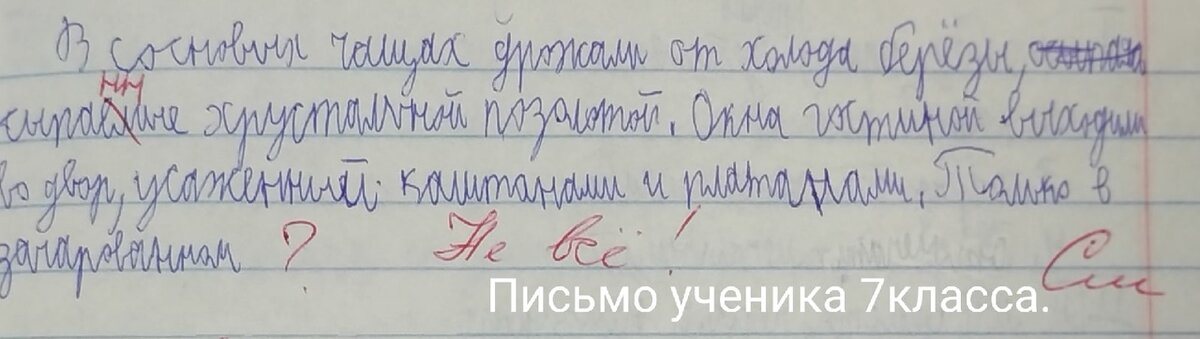 В сосновых чащах дрожали от холода берёзы,
нн
сыра ные хрустальной позолотой. Окна гостиной выходили
во двор, усаженный каштанами и платанами. Только в
зачарованном ? Не всё! См
Письмо ученика 7класса.